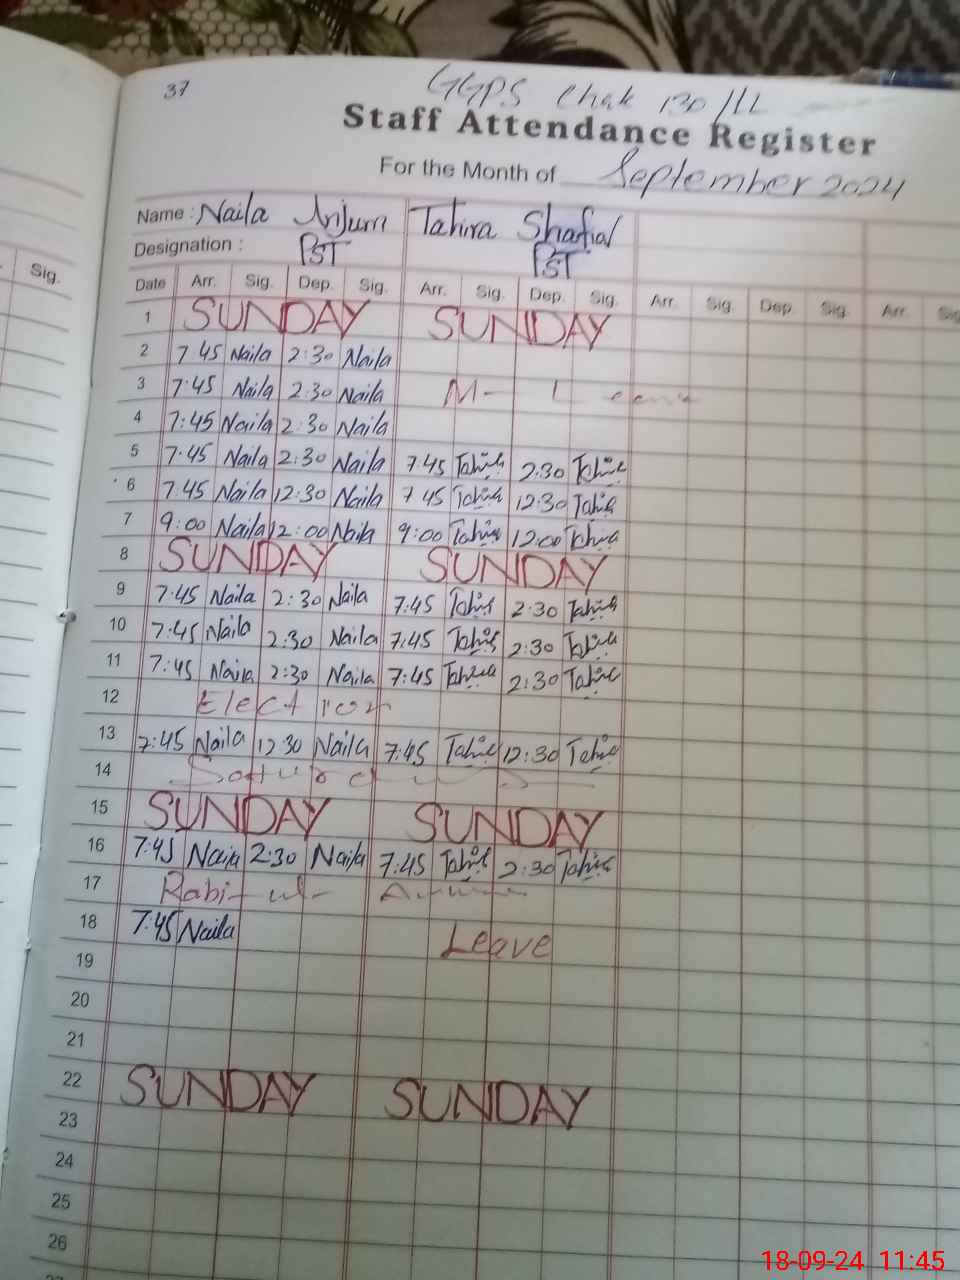 37
GGPS Chak 130/LL
Staff Attendance Register
For the Month of September 2024
Sig.
Name : Naila Anjum Tahira Shafia
Designation : PST PST
Date Arr. Sig. Dep. Sig. Arr. Sig. Dep. Sig. Arr. Sig. Dep. Sig. Arr.
1 SUNDAY SUNDAY
2 7 45 Naila 2:30 Naila
3 7:45 Naila 2:30 Naila M- Leave
4 7:45 Naila 2:30 Naila
5 7.45 Naila 2:30 Naila 7:45 2:30
6 7:45 Naila 12:30 Naila 7 45 12:30
7 9:00 Naila 12:00 Naila 9:00 12:00
8 SUNDAY SUNDAY
9 7:45 Naila 2:30 Naila 7:45 2:30
10 7:45 Naila 2:30 Naila 7:45 2:30
11 7:45 Naila 2:30 Naila 7:45 2:30
12 Election
13 7:45 Naila 12 30 Naila 7:45 12:30
14
15 SUNDAY SUNDAY
16 7:45 Naila 2:30 Naila 7:45 2:30
17 Rabi-ul-
18 7:45 Naila Leave
19
20
21
22 SUNDAY SUNDAY
23
24
25
26
18-09-24 11:45